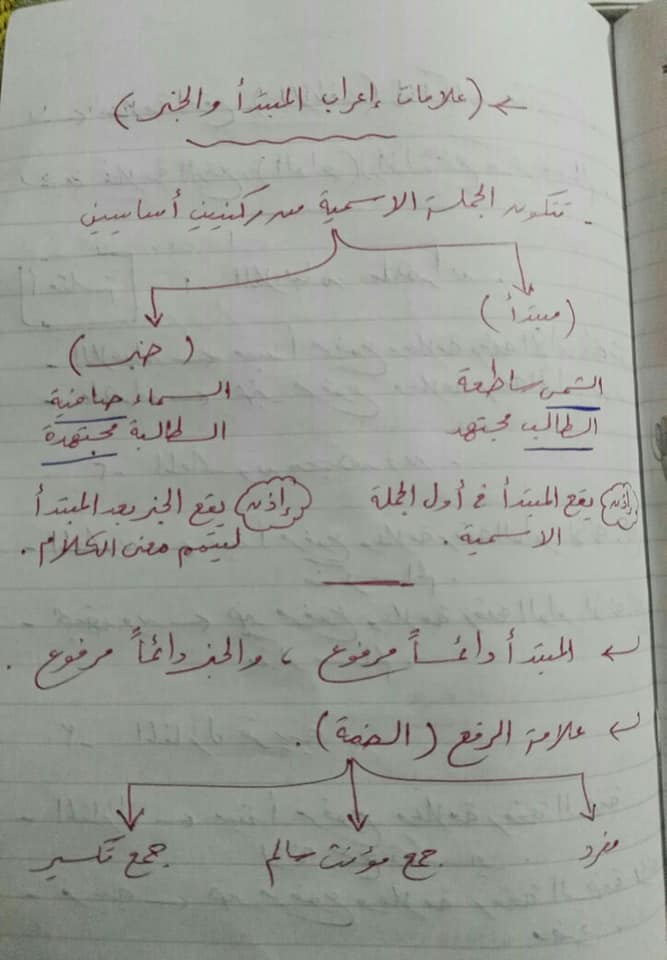 ← (علامات إعراب المبتدأ والخبر)
- تتكون الجملة الاسمية من ركنيين أساسيين
(مبتدأ)
(خبر)
الشمس ساطعة
السماء صافية
الطالب مجتهد
الطالبة مجتهدة
إذن يقع المبتدأ في أول الجملة
الاسمية.
إذن يقع الخبر بعد المبتدأ
ليتمم معنى الكلام.
← المبتدأ دائماً مرفوع ، والخبر دائماً مرفوع .
← علامة الرفع (الضمة) .
مفرد
جمع مؤنث سالم
جمع تكسير